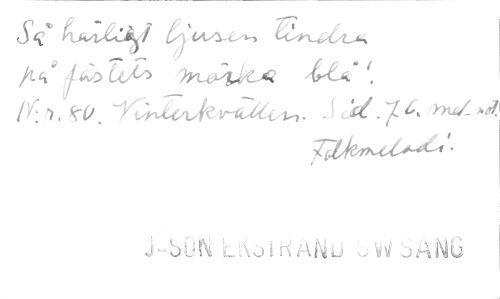 Så härligt ljusen tindra
på fästets mörka blå!
N:r. 80. Vinterkvällen. Sid. 76. med not.
Folkmelodi.
J-SON EKSTRAND SW SANG